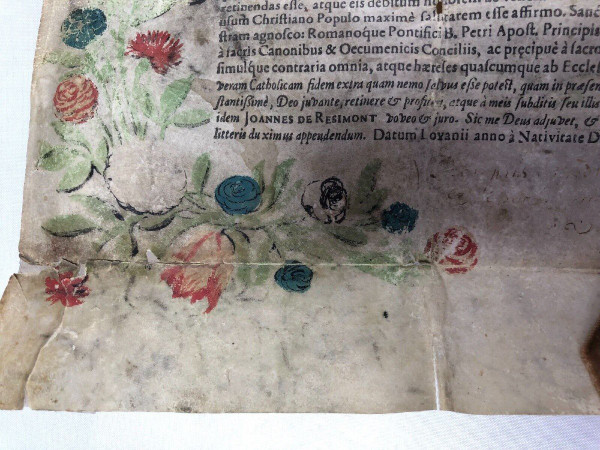 retinendas esse, atque eis debitum
usum Christiano Populo maximè salutarem esse affirmo. Sanc
stram agnosco: Romanoque Pontifici B. Petri Apost. Principis
à sacris Canonibus & Oecumenicis Conciliis, ac præcipuè à sacro
simulque contraria omnia, atque hæreses quascumque ab Eccles
veram Catholicam fidem extra quam nemo salvus esse potest, quam in præsen
stantissimè, Deo juvante, retinere & profiteri, atque à meis subditis seu illis
idem JOANNES DE RESIMONT voveo & juro. Sic me Deus adjuvet, &
litteris duximus appendendum. Datum Lovanii anno à Nativitate D